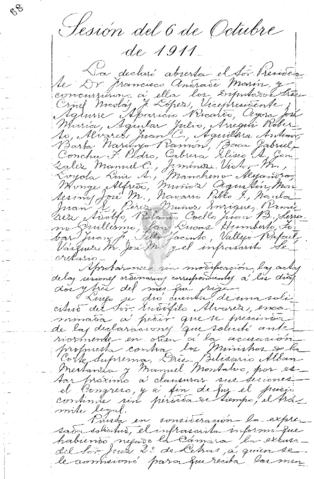 89
Sesión del 6 de Octubre
de 1911.
La declaró abierta el Sor. Presiden-
te Dr. Francisco Andrade Marín y
concurrieron a ella los Diputados Sres.
Crnel. Nicolás F. López, Vicepresidente,
Aguirre Aparicio Ricardo, Ayora José
María, Aguilar Julio, Arregui Rober-
to, Alvarez Juan C., Aguilera Antonio
Borja Naranjo Ramón, Baca Gabriel,
Conchu F. Pedro, Cabrera Eliseo A., Gon-
zález Manuel C., Jiménez Víctor M.,
Loyola Luis A., Mancheno Alejandro,
Monge Alfredo, Muñoz Agustín, Mon-
tesinos José M., Navarro Pablo I.,
Juan, Pérez Muñoz Enrique, Ramí-
rez Adolfo, Coello Juan B., Serrano
Guillermo, Humberto, To-
bar Juan, Jacinto, Vallejo Rafael,
Vásquez M. José M. y el infrascrito Se-
cretario.
Aprobáronse sin modificación, las actas
de las sesiones ordinarias correspondientes a los días
dos y tres del mes que rige.
Luego se dio cuenta de una soli-
citud del Sor. Teófilo Alvarez, enca-
minada a pedir que se prescinda
de las declaraciones que solicitó ante-
riormente en orden a la acusación
propuesta contra los Ministros de la
Corte Suprema, Dres. Belisario Albán
Mestanza y Manuel Montalvo, por es-
tar próximo a clausurar sus sesiones
el Congreso, y a fin de que el juicio
continúe sin pérdida de tiempo, el trá-
mite legal.
Puesta en consideración la expre-
sada solicitud, el infrascrito informó que
habiendo negado la Cámara la excusa
del Sor. Juez 2º de Letras, a quien se
le comisionó para que reciba las men-